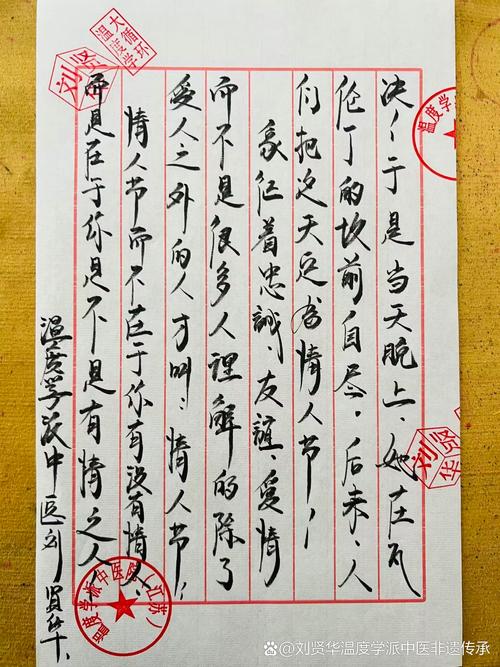 决，于是当天晚上，她在瓦
伦丁的坟前自尽，后来，人
们把这天定为情人节，
象征着忠誠、友誼、爱情
而不是很多人理解的除了
爱人之外的人才叫：情人节，
情人节而不在于你有没有情人，
而是在于你是不是有情之人，
温度学派中医刘贤华、
大循环
温度学
刘贤
温度学
刘贤华
温度学派中医院（江苏）
@刘贤华温度学派中医非遗传承